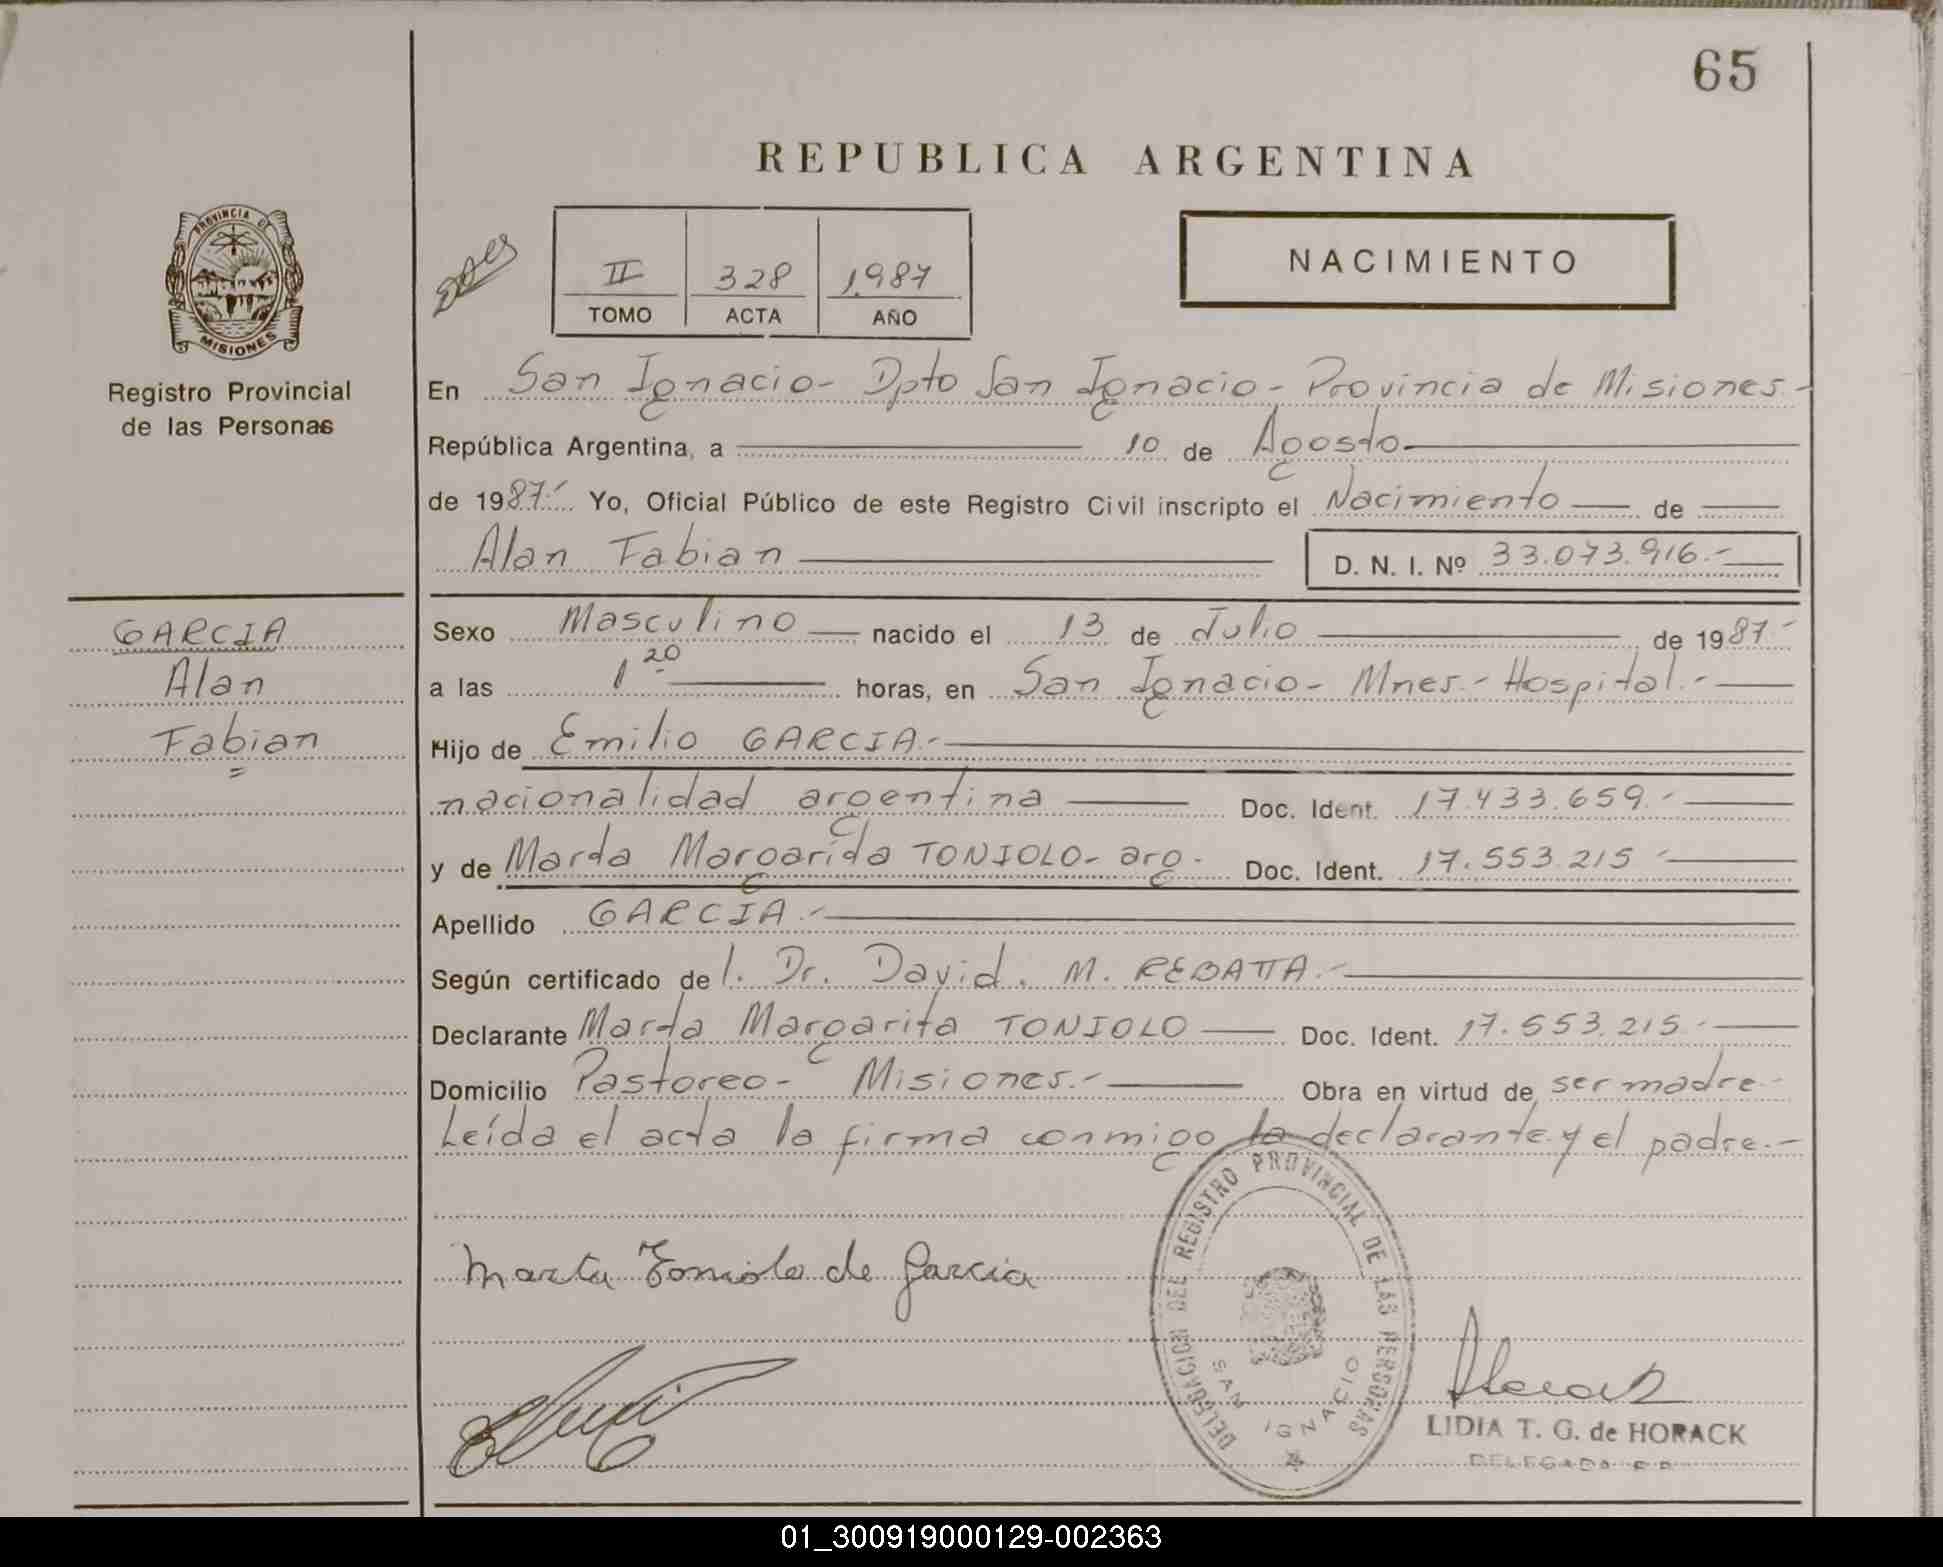 65
REPUBLICA ARGENTINA
PROVINCIA DE
MISIONES
Registro Provincial
de las Personas
II 328 1987
TOMO ACTA AÑO
NACIMIENTO
En San Ignacio - Dpto San Ignacio - Provincia de Misiones -
República Argentina, a 10 de Agosto
de 1987.- Yo, Oficial Público de este Registro Civil inscripto el Nacimiento de
Alan Fabian D. N. I. Nº 33.073.916.-
GARCIA
Alan
Fabian
Sexo Masculino nacido el 13 de Julio de 1987.-
a las 1 20 horas, en San Ignacio - Mnes.- Hospital.-
Hijo de Emilio GARCIA.-
nacionalidad argentina Doc. Ident. 17.433.659.-
y de Marta Margarita TONIOLO - arg.- Doc. Ident. 17.553.215.-
Apellido GARCIA.-
Según certificado de l. Dr. David. M.
Declarante Marta Margarita TONIOLO Doc. Ident. 17.553.215.-
Domicilio Pastoreo - Misiones.- Obra en virtud de ser madre.-
Leída el acta la firma conmigo la declarante y el padre.-
Marta Toniolo de Garcia
DELEGACION DEL REGISTRO PROVINCIAL DE LAS PERSONAS
SAN IGNACIO
LIDIA T. G. de HORACK
01_300919000129-002363